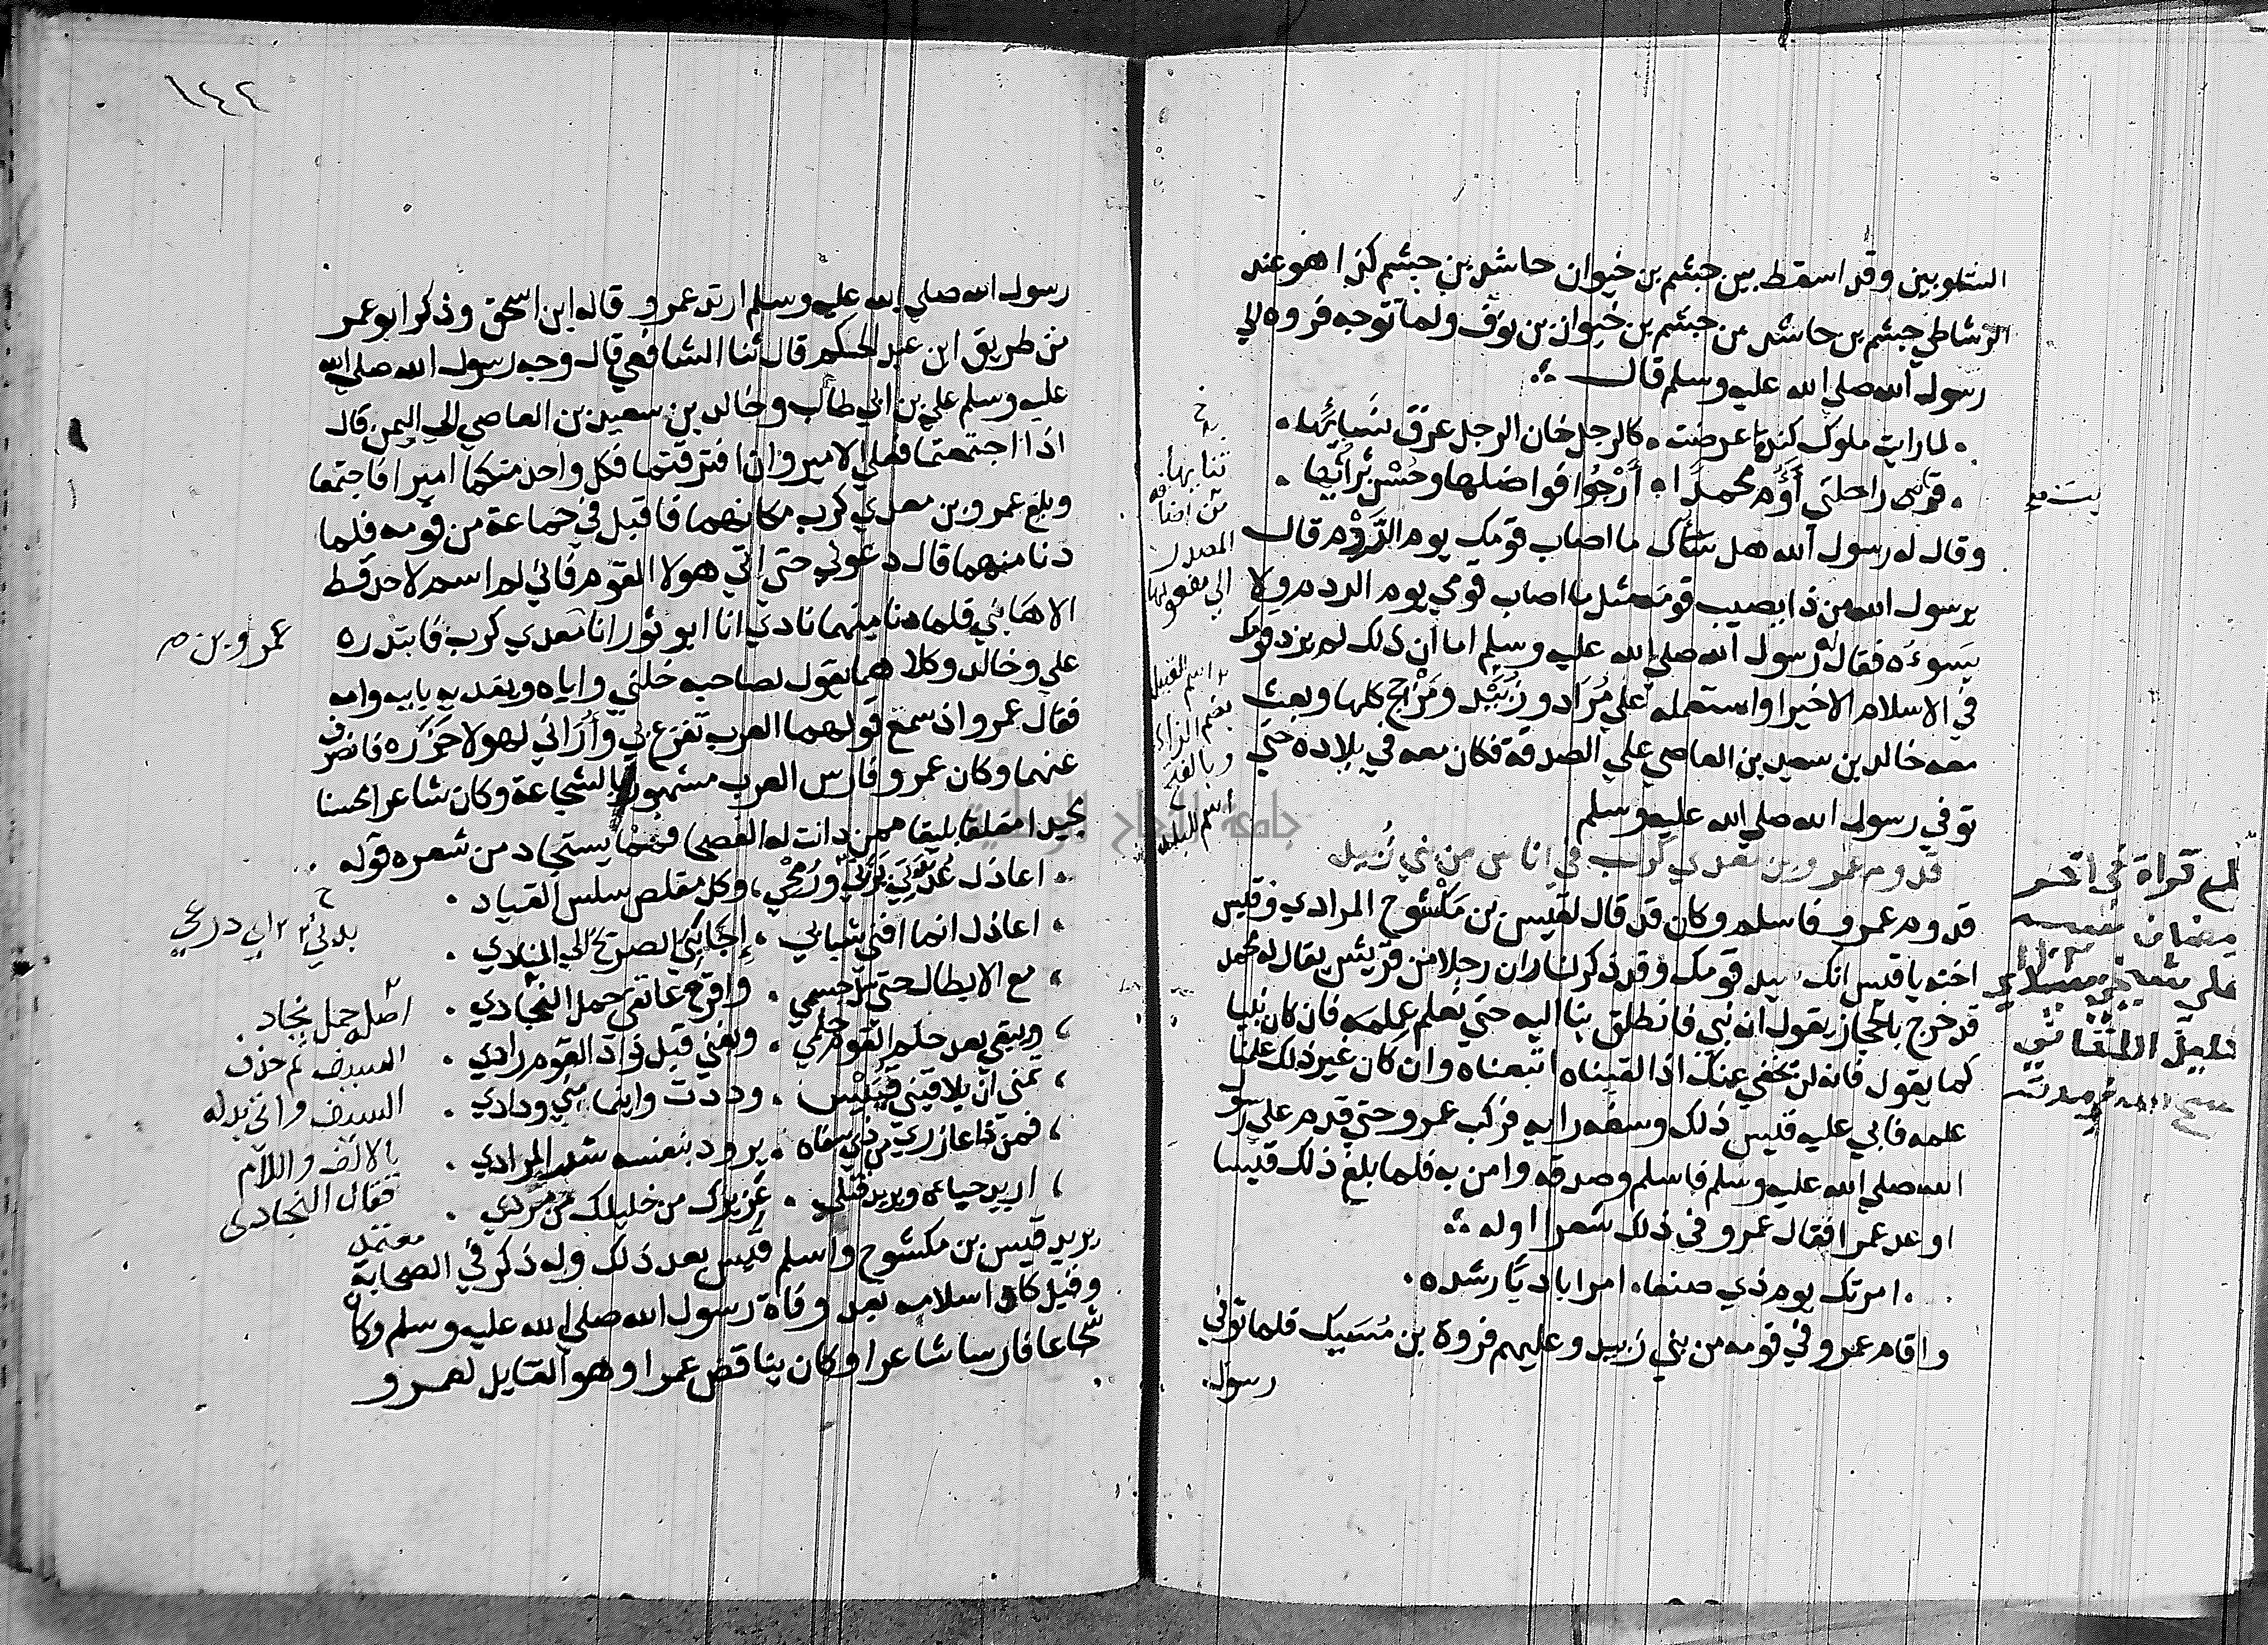 الشلوبين وقد اسقط بين جشم بن خيوان حاشد بن جشم كذا هو عند
الرشاطي جشم بن حاشد بن جشم بن خيوان بن نوف ولما توجه فروه الي
رسول الله صلي الله عليه وسلم قال
لما رايت ملوك كندة اعرضت كالرجل خان الرجل عرق نسائها
قربت راحلتي أؤم محمدا أرجوا فواضلها وحسن ثرائها
وقال له رسول الله هل ساك ما اصاب قومك يوم الردم قال
يرسول الله من ذا يصيب قومه مثل ما اصاب قومي يوم الردم ولا
يسوءه فقال له رسول الله صلي الله عليه وسلم اما ان ذلك لم يزد قومك
في الاسلام الا خيرا واستعمله علي مراد وزبيد ومذحج كلها وبعث
معه خالد بن سعيد بن العاصي علي الصدقة فكان معه في بلاده حتي
توفي رسول الله صلي الله عليه وسلم
قدوم عمرو بن معدي كرب في اناس من بني زبيد
قدوم عمرو فاسلم وكان قد قال لقيس بن مكشوح المرادي وقيس
اخته يا قيس انك سيد قومك وقد ذكر لنا ان رجلا من قريش يقال له محمد
قد خرج بالحجاز يقول انه نبي فانطلق بنا اليه حتي نعلم علمه فان كان نبيا
كما يقول فانه لن يخفي عنك اذا لقيناه اتبعناه وان كان غير ذلك علمنا
علمه فابي عليه قيس ذلك وسفه رايه فركب عمرو حتي قدم علي رسول
الله صلي الله عليه وسلم فاسلم وصدقه وامن به فلما بلغ ذلك قيسا
اوعد عمرا فقال عمرو في ذلك شعرا اوله
امرتك يوم ذي صنعاء امرا باديًا رشده
واقام عمرو في قومه من بني زبيد وعليهم فروة بن مسيك فلما توفي
رسول
بيت مع
بلغ قراة في اخر
رمضان سنة
علي شيخي سيدي
خليل اللقاني
فسح الله في مدته
خ
ثنايها
من اضافة
المصدر
الي مفعولها
اسم القبيلة
بضم الزاء
وبالفتح
اسم البلد
١٤٢
رسول الله صلي الله عليه وسلم ارتد عمرو قاله ابن اسحق وذكر ابو عمر
من طريق ابن عبد الحكم قال ثنا الشافعي قال وجه رسول الله صلي الله
عليه وسلم علي بن ابي طالب وخالد بن سعيد بن العاصي الي اليمن قال
اذا اجتمعتما فعلي الامير وان افترقتما فكل واحد منكما امير فاجتمعا
وبلغ عمرو بن معدي كرب مكانهما فاقبل في جماعة من قومه فلما
دنا منهما قال دعوني حتي اتي هولا القوم فاني لم اسم لاحد قط
الا هابني فلما دنا منهما نادي انا ابو ثور انا معدي كرب فابتدره
علي وخالد وكلاهما يقول لصاحبه خلني واياه ويفديه بابيه وامه
فقال عمرو اذ سمع قولهما العرب تفزع بي وأراني لهولا جزره فانصرف
عنهما وكان عمرو فارس العرب مشهورا بالشجاعة وكان شاعرا محسنا
مجيدا مفلقا بليغا ممن دانت له الفصحا ومما يستجاد من شعره قوله
اعاذل عدتي يزني ورمحي وكل مقلص سلس القياد
اعاذل انما افني شبابي إجابتي الصريخ الي المنادي
مع الابطال حتي سل جسمي واقرح عاتقي حمل النجادي
ويبقي بعد حلم القوم حلمي ويفني قبل زاد القوم زادي
تمني ان يلاقيني قييس وددت واينما مني ودادي
فمن ذا عاذري من ذي سفاه يرود بنفسه شر المرادي
اريد حياءه ويريد قتلي عذيرك من خليلك من مرادي
يريد قيس بن مكشوح واسلم قيس بعد ذلك وله ذكر في الصحابة
وقيل كان اسلامه بعد وفاة رسول الله صلي الله عليه وسلم وكان
شجاعا فارسا شاعرا وكان يناقض عمرا وهو القايل لعمرو
عمرو بن م
خ
بدني اي درعي
اصله حمل نجاد
السيف ثم حذف
السيف واتي بدله
بالالف واللام
فقال النجادي
معتمد